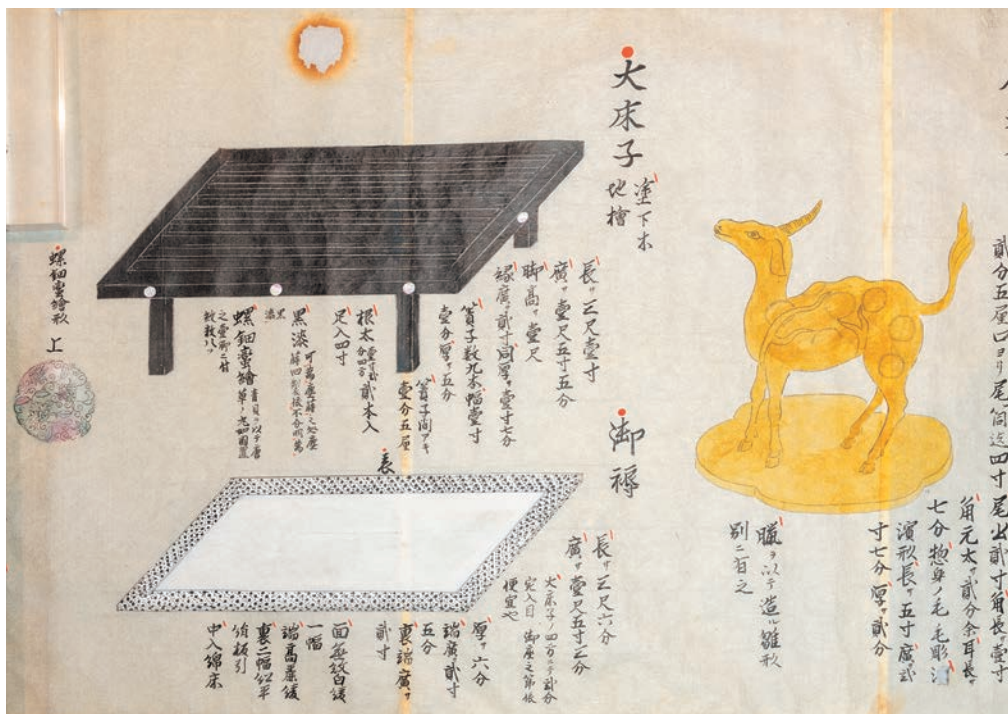 貳分五厘口ヨリ尾筒迄四寸尾出貳寸角長サ壹寸
角元太サ貳分余耳長サ
七分惣身ノ毛毛彫
濱形長サ五寸廣サ弐
寸七分厚サ貳分
臘ヲ以テ造ル雛形
別ニ有之
大床子
塗下木
地檜
長サ三尺壹寸
廣サ壹尺五寸五分
脚高サ壹尺
縁廣サ貳寸同厚サ壹寸七分
簀子数九本幅壹寸
壹分厚サ五分
簀子間アキ
壹分五厘
根太
貳本入
足入四寸
黒漆
螺鈿蛮繪
螺鈿蛮繪形
上
御褥
表
長サ三尺六分
廣サ壹尺五寸三分
厚サ六分
端廣貳寸
五分
裏端廣サ
貳寸
面無紋白綾
一幅
端高麗綾
裏二幅紅平
絹板引
中入綿床